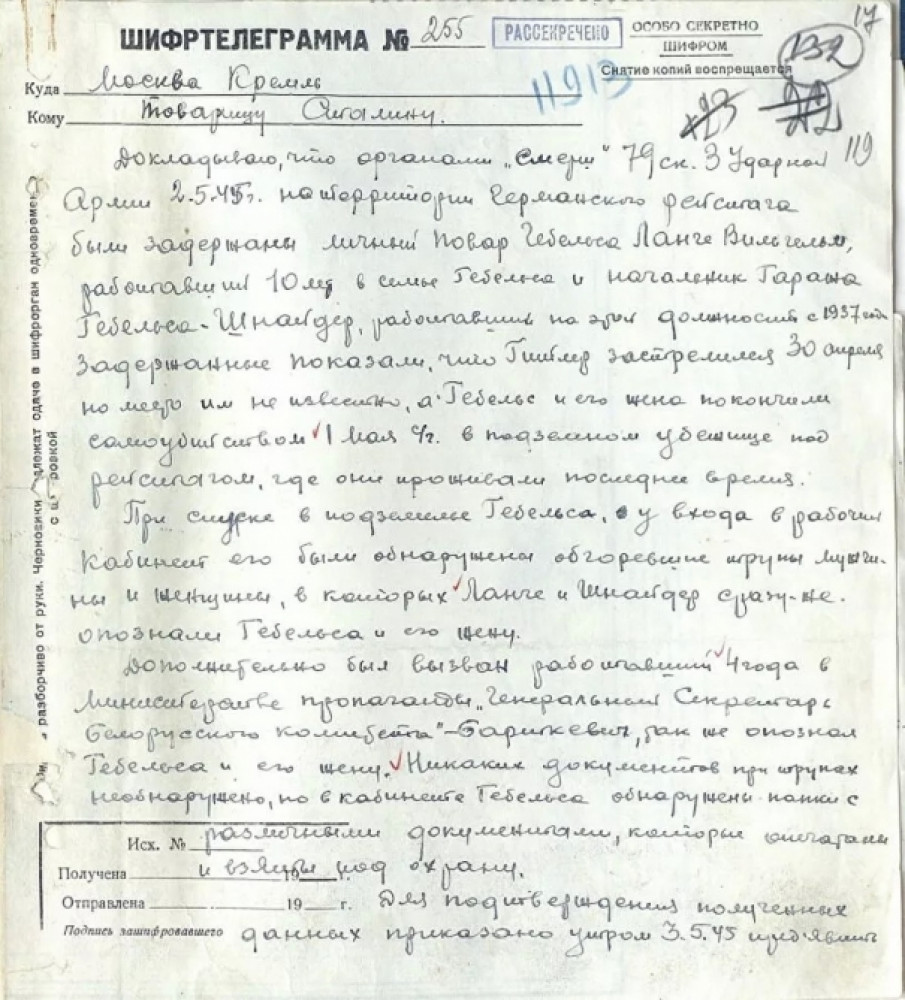 17
ШИФРТЕЛЕГРАММА № 255
РАССЕКРЕЧЕНО
ОСОБО СЕКРЕТНО
ШИФРОМ
Снятие копий воспрещается
132
Куда Москва Кремль
11913
Кому Товарищу Сталину.
119
Докладываю, что органами „Смерш" 79 ск. 3 Ударной
Армии 2.5.45г. на территории Германского рейхстага
были задержаны личный повар Гебельса Ланге Вильгельм,
работавший 10 лет в семье Гебельса и начальник Гаража
Гебельса - Шнайдер, работавший на этой должности с 1937 года
Задержанные показали, что Гитлер застрелился 30 апреля
но место им не известно, а Гебельс и его жена покончили
самоубийством 1 мая с/г. в подземном убежище под
рейхстагом, где они проживали последнее время.
При спуске в подземелье Гебельса, у входа в рабочий
кабинет его были обнаружены обгоревшие трупы мужчи-
ны и женщины, в которых Ланге и Шнайдер сразу-же.
опознали Гебельса и его жену.
Дополнительно был вызван работавший 4 года в
Министерстве пропаганды „Генеральный Секретарь
Белорусского комитета" - так же опознал
Гебельса и его жену. Никаких документов при трупах
необнаружено, но в кабинете Гебельса обнаружены папки с
различными документами, которые опечатаны
и взяты под охрану.
Для подтверждения полученных
данных приказано утром 3.5.45
Исх. №
Получена 19 г.
Отправлена 19 г.
Подпись зашифровавшего
разборчиво от руки. Черновики одаче в шифрорган одновремен
ровкой